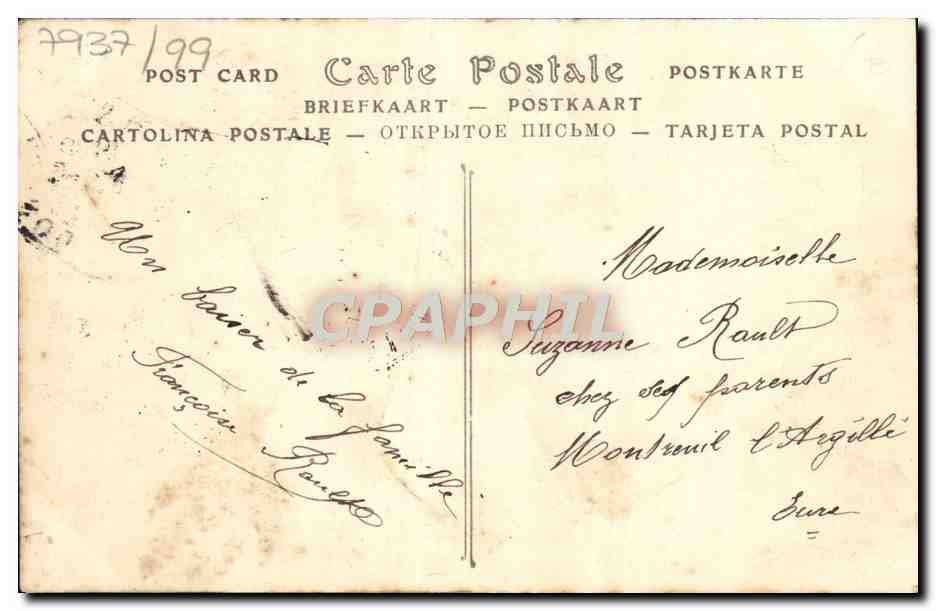 7937/99
POST CARD Carte Postale POSTKARTE
BRIEFKAART — POSTKAART
CARTOLINA POSTALE — ОТКРЫТОЕ ПИСЬМО — TARJETA POSTAL
Un
baiser de la famille
Françoise Rault
Mademoiselle
Suzanne Rault
chez ses parents
Montreuil l'Argillé
Eure
CPAPHIL